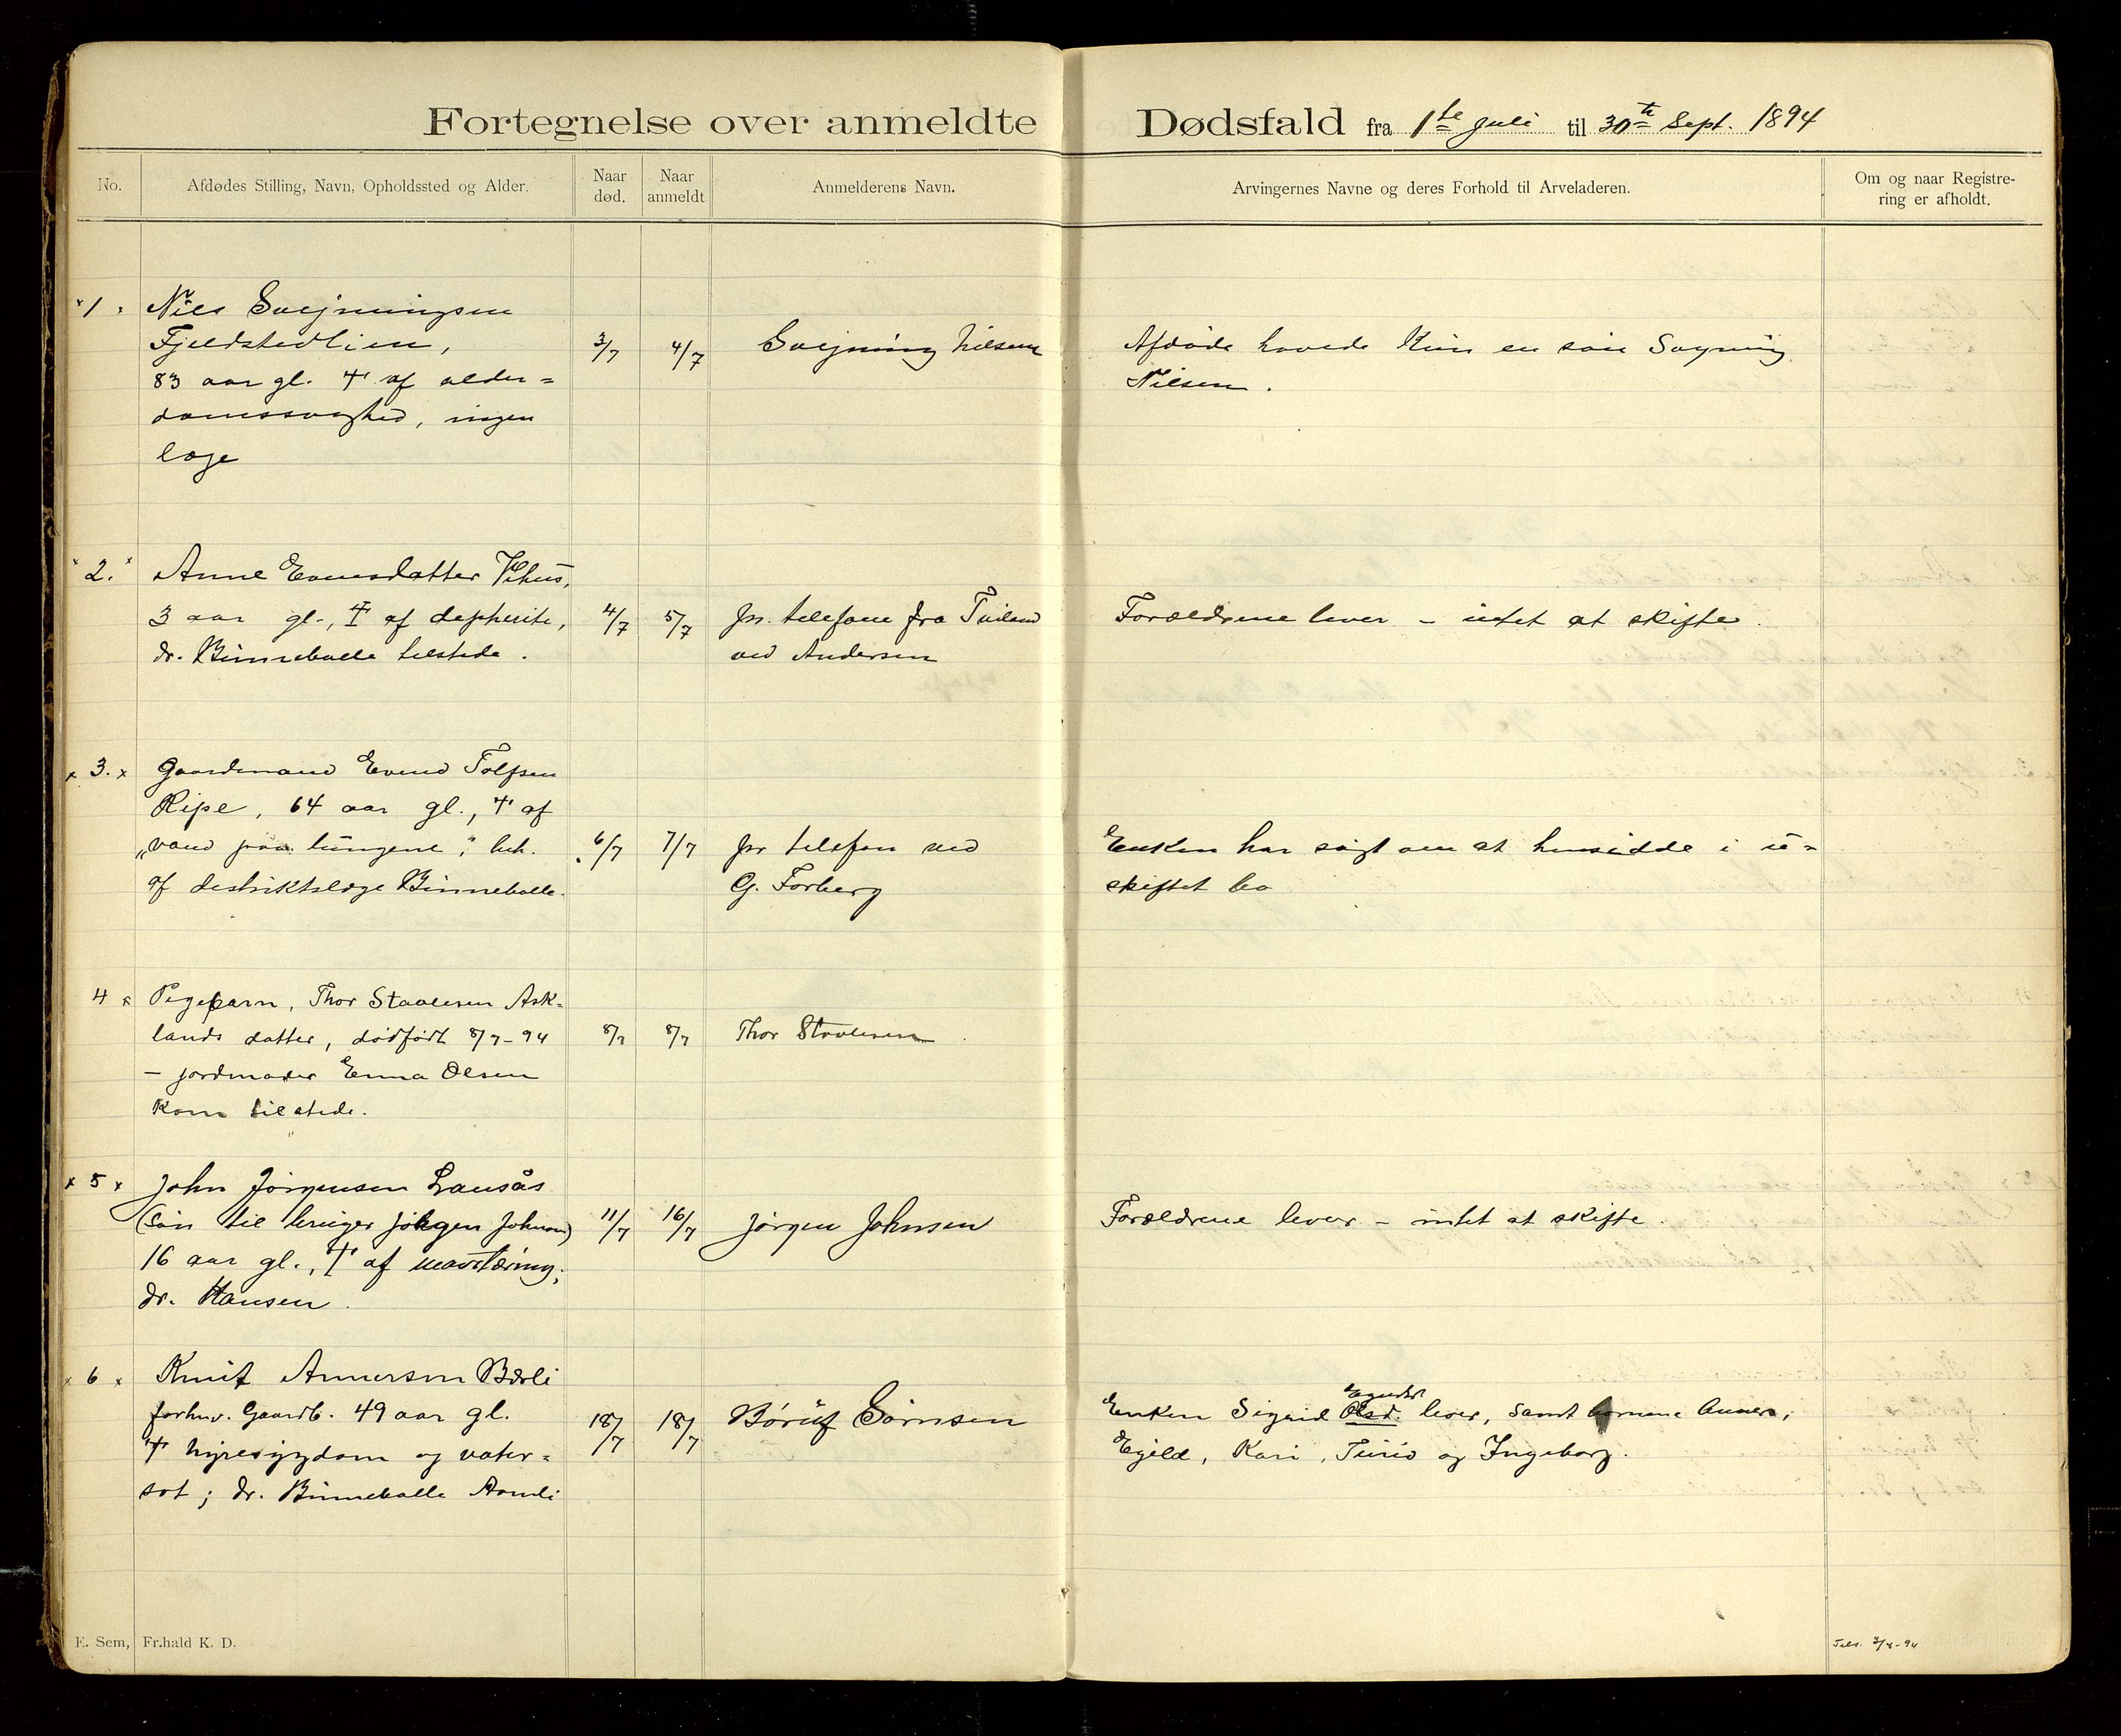 Fortegnelse over anmeldte Dødsfald fra 1ste Juli til 30te Sept. 1894
No.
Afdødes Stilling, Navn, Opholdssted og Alder.
Naar død.
Naar anmeldt
Anmelderens Navn.
Arvingernes Navne og deres Forhold til Arveladeren.
Om og naar Registre-
ring er afholdt.
1.
Niels Svejnungsen
Fjeldstedlien,
83 aar gl. † af alder=
domssvaghed, ingen
læge
3/7
4/7
Svejnung Nilsen
Afdøde havde kun en søn Svejnung
Nilsen.
2.
Anne Evensdatter Vehus,
3 aar gl., † af depherite,
dr. Binneballe tilstede.
4/7
5/7
pr. telefone fra
ved Andersen
Forældrene lever - intet at skifte.
3.
Gaardmand Evend Tolfsen
Ripe, 64 aar gl., † af
"vand paa lungene", beh.
af destriktslæge Binneballe.
6/7
7/7
pr telefon ved
G. Forberg
Enken har søgt om at hensidde i u-
skiftet bo
4
Pigebarn, Thor Staalesen Ask=
lands datter, dødfødt 8/7-94
- jordmoder Emma Olsen
kom tilstede.
8/7
8/7
Thor Staalesen
5
John Jørgensen Lausås
(søn til bruger Jørgen Johnsen)
16 aar gl., † af mavetæring;
dr. Hansen.
11/7
16/7
Jørgen Johnsen
Forældrene lever - intet at skifte.
6
Knut Annersen Bærli
forhnv. Gaardb. 49 aar gl.
† nyresygdom og vater=
sot; dr. Binneballe Aamli
18/7
18/7
Børuf Sørnsen
Enken Sigrid Olsd. lever, samt børnene Anners,
Egild, Kari, Turid og Ingeborg.
E. Sem, Fr.hald K. D.